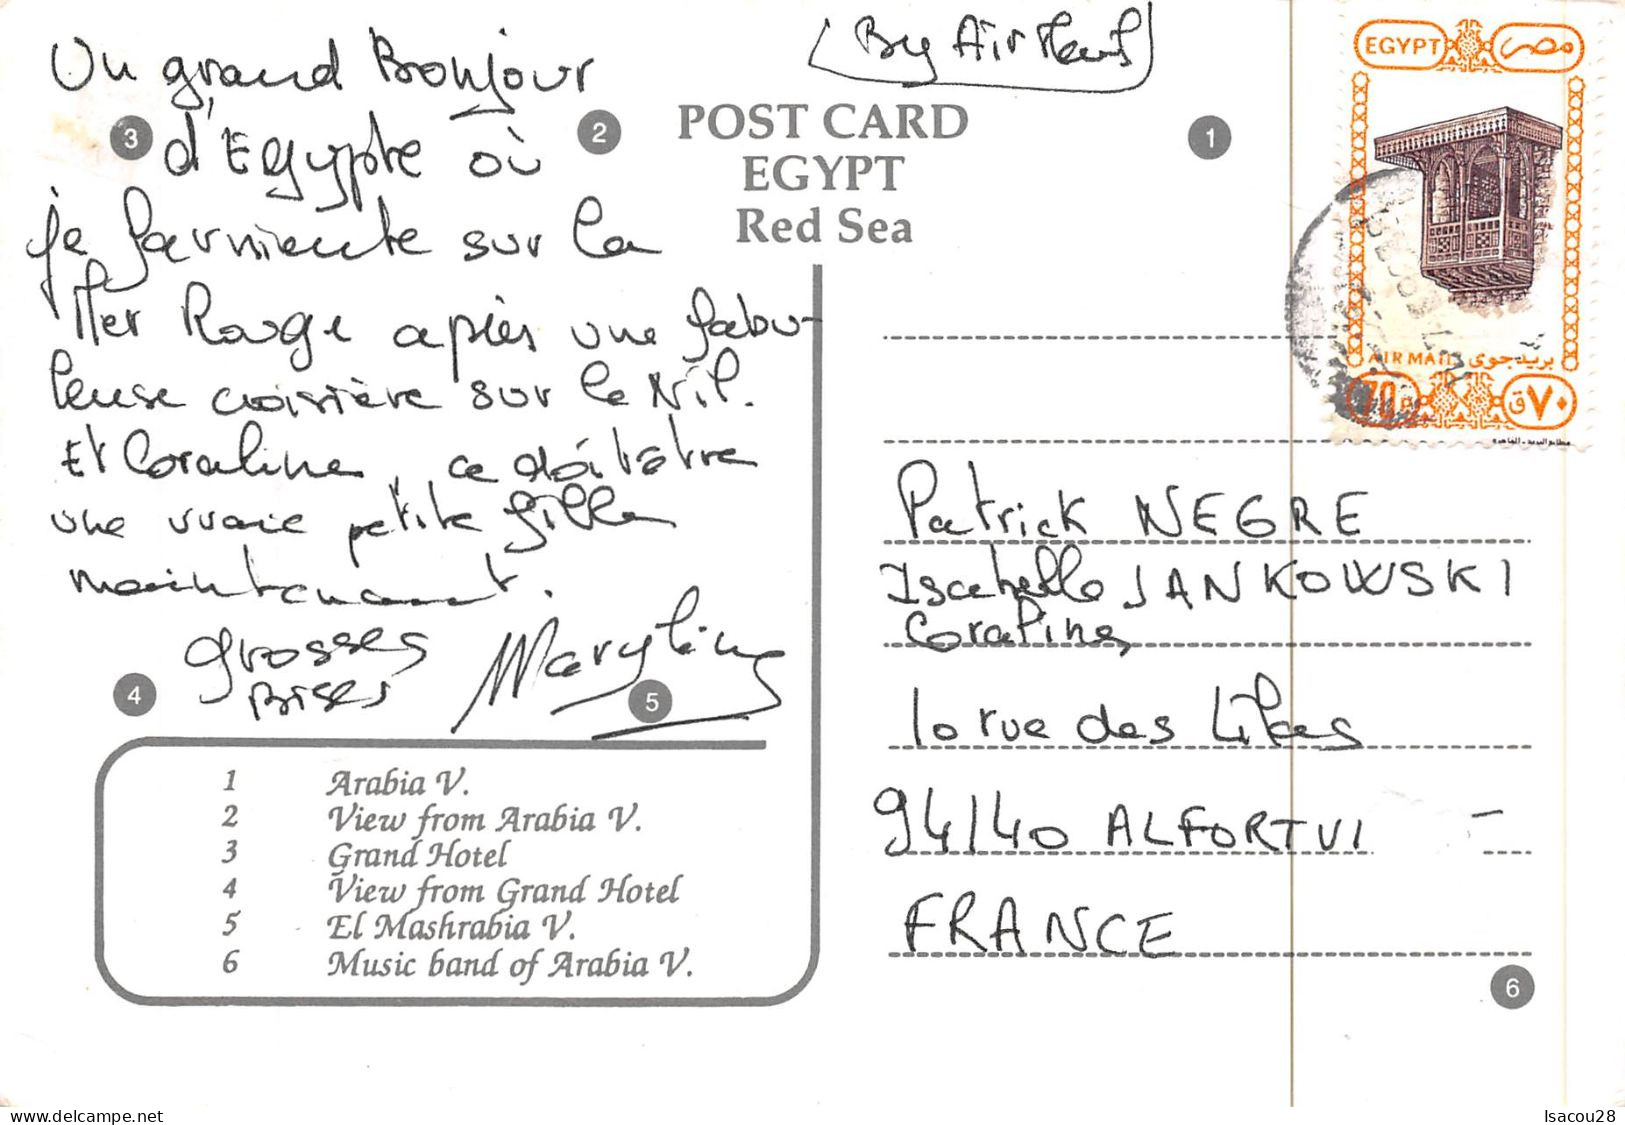 Un grand Bonjour
d'Egypte où
je farniente sur la
Mer Rouge après une fabu-
leuse croisière sur le Nil.
Et Coraline, ce doit être
une vraie petite fille
maintenant.
Grosses
Bises
Maryline
3
2
4
5
POST CARD
EGYPT
Red Sea
1 Arabia V.
2 View from Arabia V.
3 Grand Hotel
4 View from Grand Hotel
5 El Mashrabia V.
6 Music band of Arabia V.
By Air
1
EGYPT مصر
AIR MAIL بريد جوى
70 P ٧٠ ق
مطابع البريد - القاهرة
Patrick NEGRE
Isabelle JANKOWSKI
Coraline
10 rue des Lilas
94140 ALFORTVI
FRANCE
6
www.delcampe.net
Isacou28